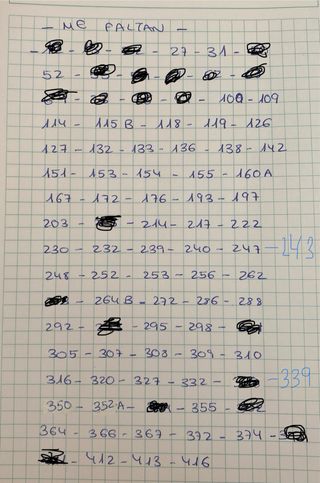 - ME FALTAN -
- 27 - 31 -
52 -
- 100 - 109
114 - 115B - 118 - 119 - 126
127 - 132 - 133 - 136 - 138 - 142
151 - 153 - 154 - 155 - 160A
167 - 172 - 176 - 193 - 197
203 - - 214 - 217 - 222
230 - 232 - 239 - 240 - 247 - 243
248 - 252 - 253 - 256 - 262
- 264B - 272 - 286 - 288
292 - - 295 - 298 -
305 - 307 - 308 - 309 - 310
316 - 320 - 327 - 332 - - 339
350 - 352A - - 355 -
364 - 366 - 367 - 372 - 374 -
- 412 - 413 - 416